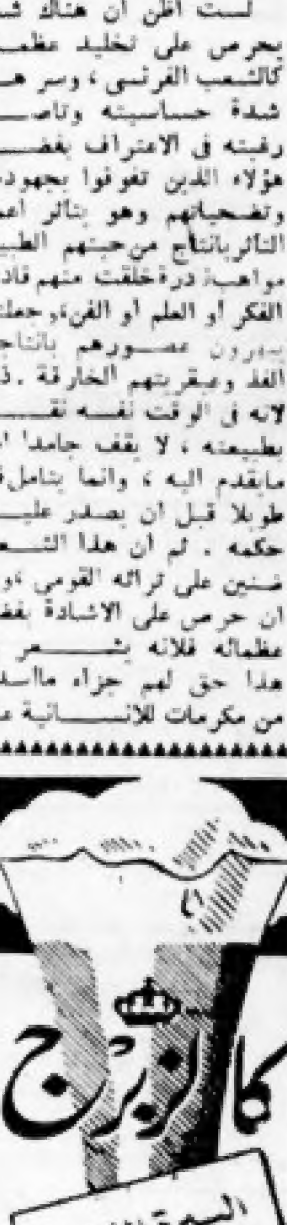 لست أظن أن هناك
يحرص على تخليد
كالشعب الفرنسي ، وسر
شدة حساسيته
رغبته في الاعتراف
هؤلاء الذين تفوقوا
وتضحياتهم وهو يتأثر
التأثر بانتاج من حبتهم
مواهب درة خلقت منهم
الفكر أو العلم أو الفن ،
يبهرون عصورهم
الفذ وعبقريتهم الخارقة .
لانه في الوقت نفسه
بطبيعته ، لا يقف جامدا
مايقدم اليه ، وانما يتامل
طويلا قبل أن يصدر
حكمه . ثم أن هذا
ضنين على تراثه القومي ،
ان حرص على الاشادة
عظمائه فلانه يشعر
هذا حق لهم جزاء
من مكرمات للانسانية
كالزبرج